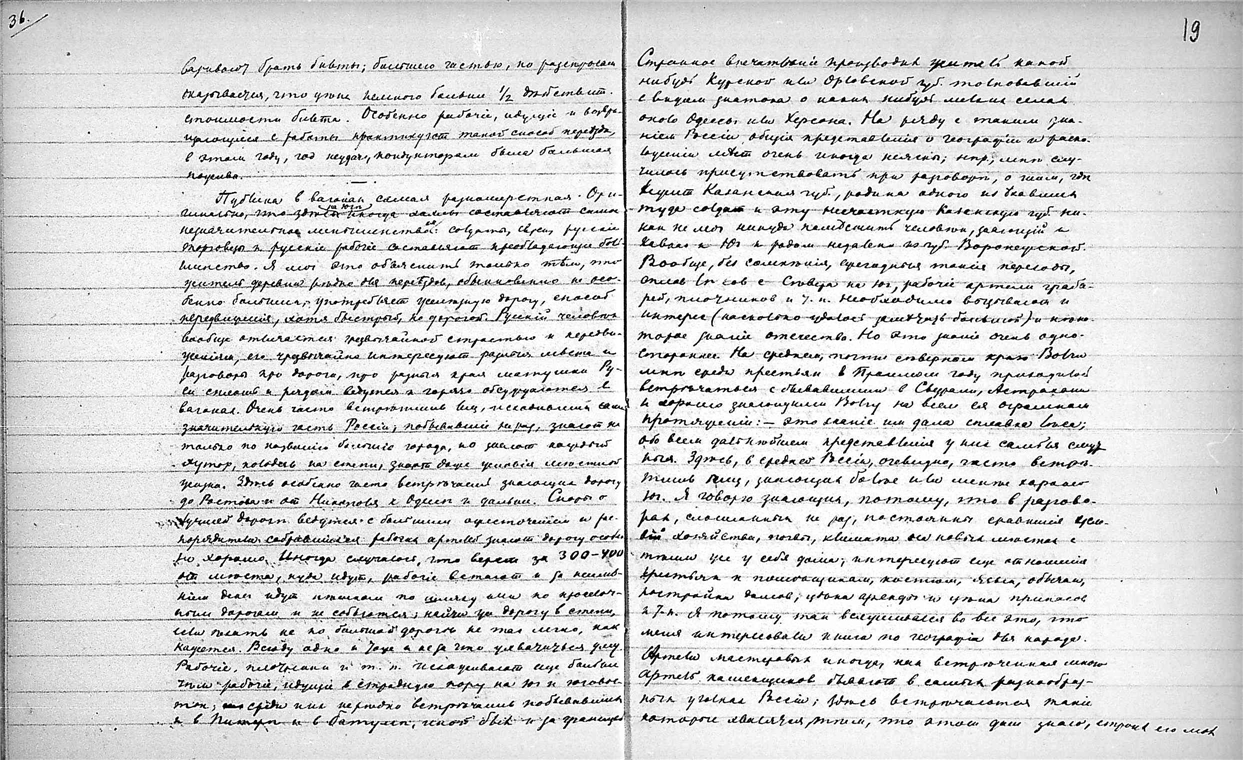 36.
брать билеты; большею частью, по разспросам
оказывается, что цена немного больше 1/2 действит.
стоимости билета. Особенно рабочие, идущие и возвра-
щающиеся с работы практикуют такой способ переезда,
в этом году, год неудач, кондукторам была большая
пожива.
Публика в вагонах самая разношерстная. Ори-
гинально, что здесь на юге иногда хохлы составляют самое
незначительное меньшинство: солдаты, евреи, русские
торговцы и русские рабочие составляют преобладающее боль-
шинство. Я мог это объяснить только тем, что
житель деревни редко для переездов, обыкновенно не осо-
бенно больших, употребляет железную дорогу, способ
передвижения, хотя быстрый, но дорогой. Русский человек
вообще отличается чрезвычайной страстью к передви-
жениям, его чрезвычайно интересуют разные места и
разговоры про дороги, про разные края матушки Ру-
си сплошь и рядом ведутся и горячо обсуждаются в
вагонах. Очень часто встретишь лиц, исходивших самую
значительную часть России, побывавший не раз, знает не
только по названию большие города, но знает каждый
хутор, колодезь на степи, знает даже условия местной
жизни. Здесь особенно часто встречаешь знающих дорогу
до Ростова и от Николаева к Одессе и дальше. Споры о
лучшей дороге ведутся с большим ожесточением и
рабочих артелей знают дорогу особен-
но хорошо. Иногда случалось, что верст за 300-400
от места, куда идут, рабочие встают и за неиме-
нием денег идут пешком по шляху или по проселоч-
ным дорогам и не собьются; найти же дорогу в степи,
если ехать не по большой дороге не так легко, как
кажется. Всюду одно и тоже и не за что ухватиться глазу.
Рабочие, плотники и т. п. исхаживают еще больше
чем рабочие, идущие в страдную пору на юг и юговос-
ток; среди них нередко встречались побывавшие
и в и в Батуме, иной был и за границей
19
Странное впечатление производил житель какой
нибудь Курской или Орловской губ. толковавший
с видом знатока о каких нибудь мелких селах
около Одессы или Херсона. На ряду с таким зна-
нием России общие представления о географии и распо-
ложении мест очень иногда неясны; напр., мне слу-
чилось присутствовать при разговоре, о том, где
лежит Казанская губ., родина одного из ехавших
туда солдат и эту несчастную Казанскую губ. ни-
как не мог никуда поместить человек, знающий и
Кавказ и Юг и родом недалеко из губ. Воронежской.
Вообще, без сомнения, ежегодные такие переходы,
сплав с Севера на юг, рабочие артели граба-
рей, плотников и т. п. необходимо возбуждают и
интерес (насколько удалось заметить большой) и неко-
торое знание отечества. Но это знание очень одно-
стороннее. На среднем, почти северном краю Волги
мне среди крестьян в Прошлом году приходилось
встречаться с бывавшими в Сызрани, Астрахани
и хорошо знающими Волгу на всем ея огромном
протяжении: — это знание им дала сплавка леса;
обо всем дальнейшем представления у них самые смут-
ныя. Здесь, в средней России, очевидно, часто встре-
тишь лиц, знающих более или менее хорошо
юг. Я говорю знающих, потому, что в разгово-
рах, слышанных не раз, постоянны сравнения усло-
вий хозяйства, почвы, климата всех новых местов с
теми что у себя дома; интересуют еще отношения
крестьян к помещикам, костюм, язык, обычаи,
постройка домов; цена аренды и цена припасов
и т. п. Я потому так вслушивался во все это, что
меня интересовала книга по географии для народа.
Артели мастеровых иногда, как встреченная мною
артель каменщиков бывают в самых разнообраз-
ных уголках России; здесь встречаются такие
которые хвалятся тем, что этот дом знаю, строил его мол